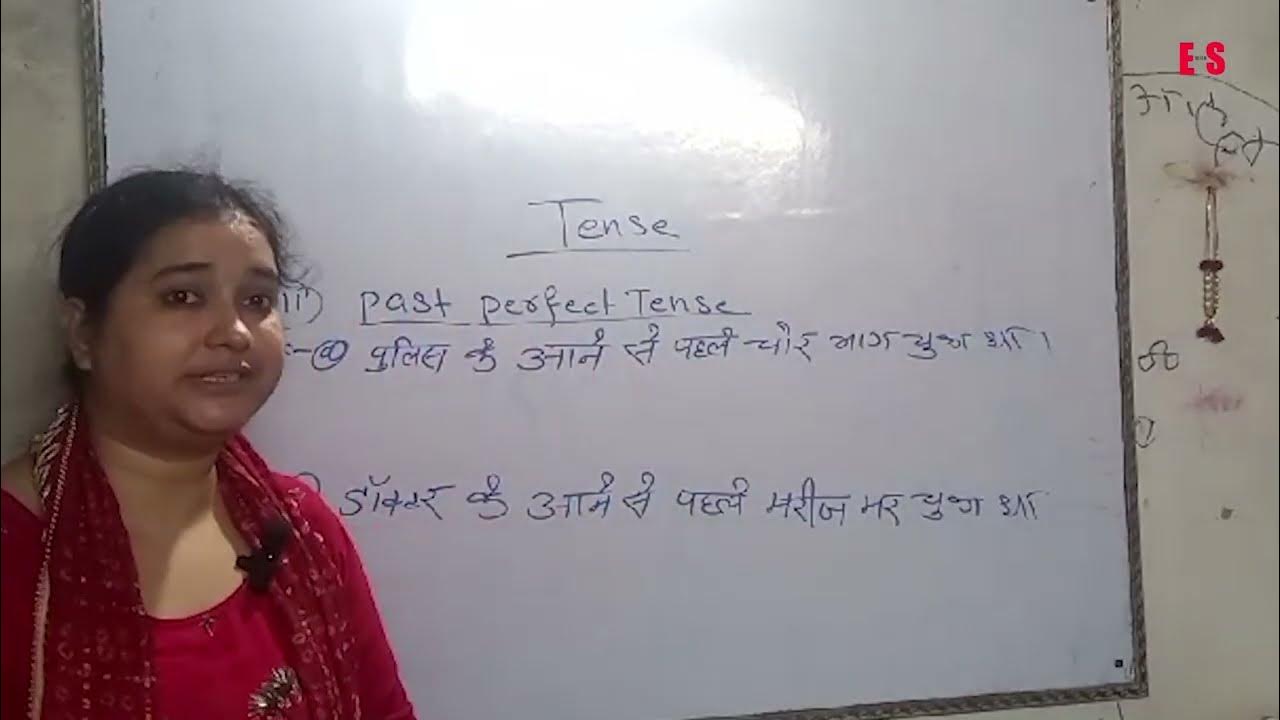 E S
Tense
iii) Past perfect Tense
:- @ पुलिस के आने से पहले चोर भाग चुका था।
डॉक्टर के आने से पहले मरीज मर चुका था